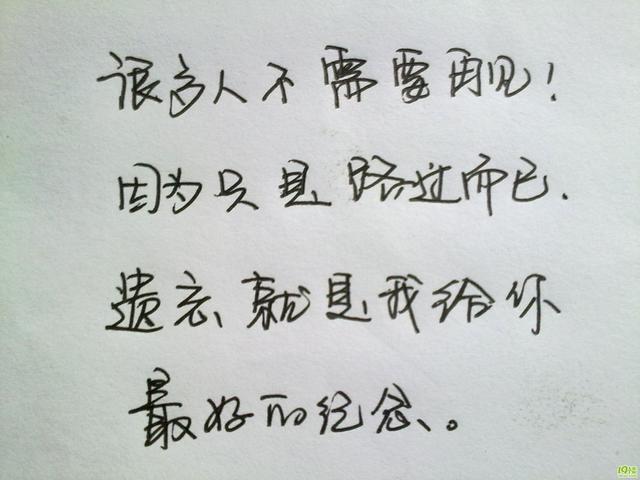 很多人不需要再见！
因为只是路过而已.
遗忘就是我给你
最好的纪念。
19楼